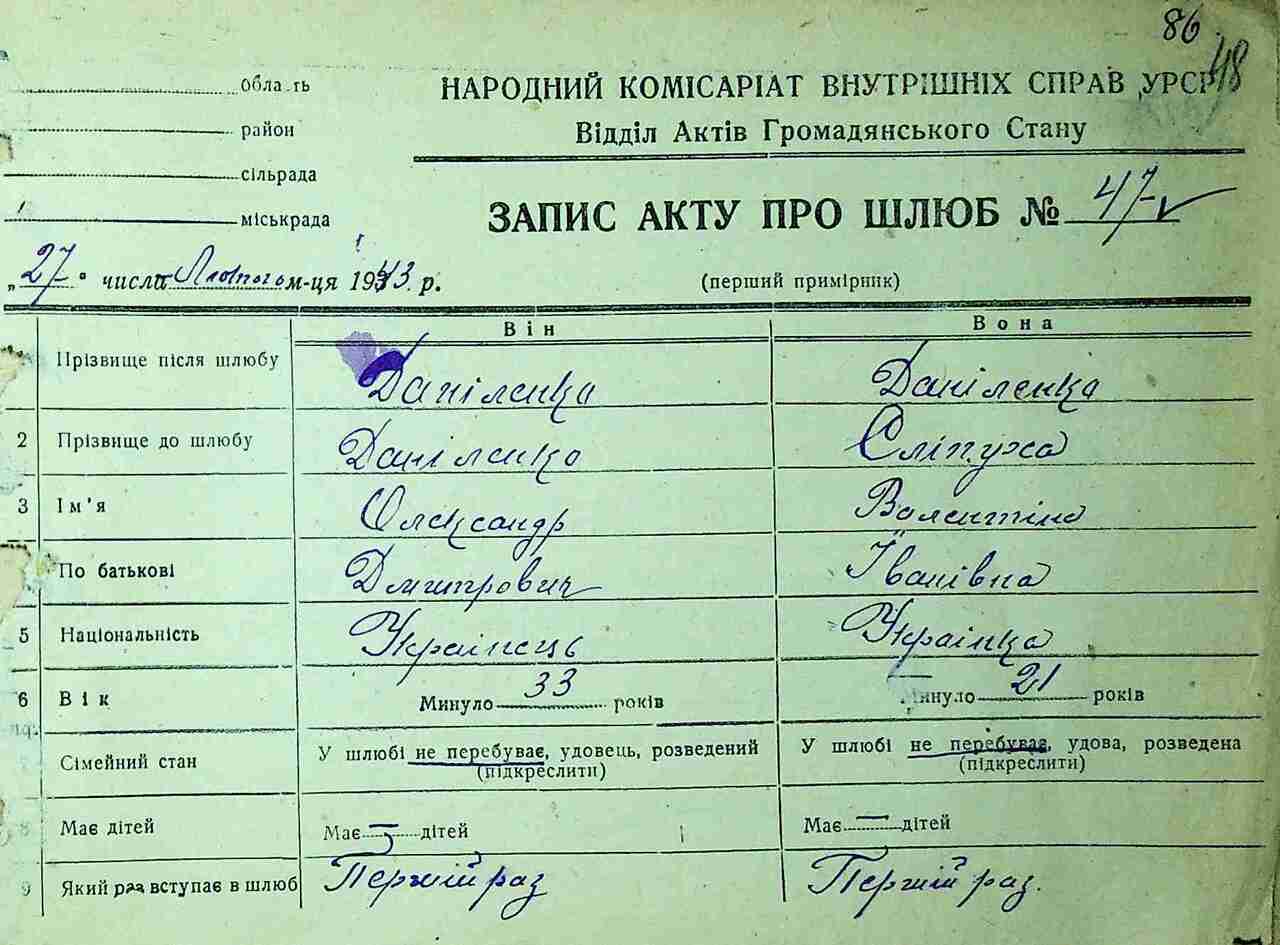 86
48
Область
НАРОДНИЙ КОМІСАРІАТ ВНУТРІШНІХ СПРАВ УРСР
район
Відділ Актів Громадянського Стану
сільрада
міськрада
ЗАПИС АКТУ ПРО ШЛЮБ № 47
„27" числа Лютого м-ця 1943 р.
(перший примірник)
Він Вона
Прізвище після шлюбу Даніленко Даніленко
2 Прізвище до шлюбу Даніленко Сліпуха
3 Ім'я Олександр Валентіна
По батькові Дмитрович Іванівна
5 Національність Українець Українка
6 Вік Минуло 33 років Минуло 21 років
Сімейний стан У шлюбі не перебуває, удовець, розведений У шлюбі не перебуває, удова, розведена
(підкреслити) (підкреслити)
8 Має дітей Має — дітей Має — дітей
9 Який раз вступає в шлюб Перший раз Перший раз.